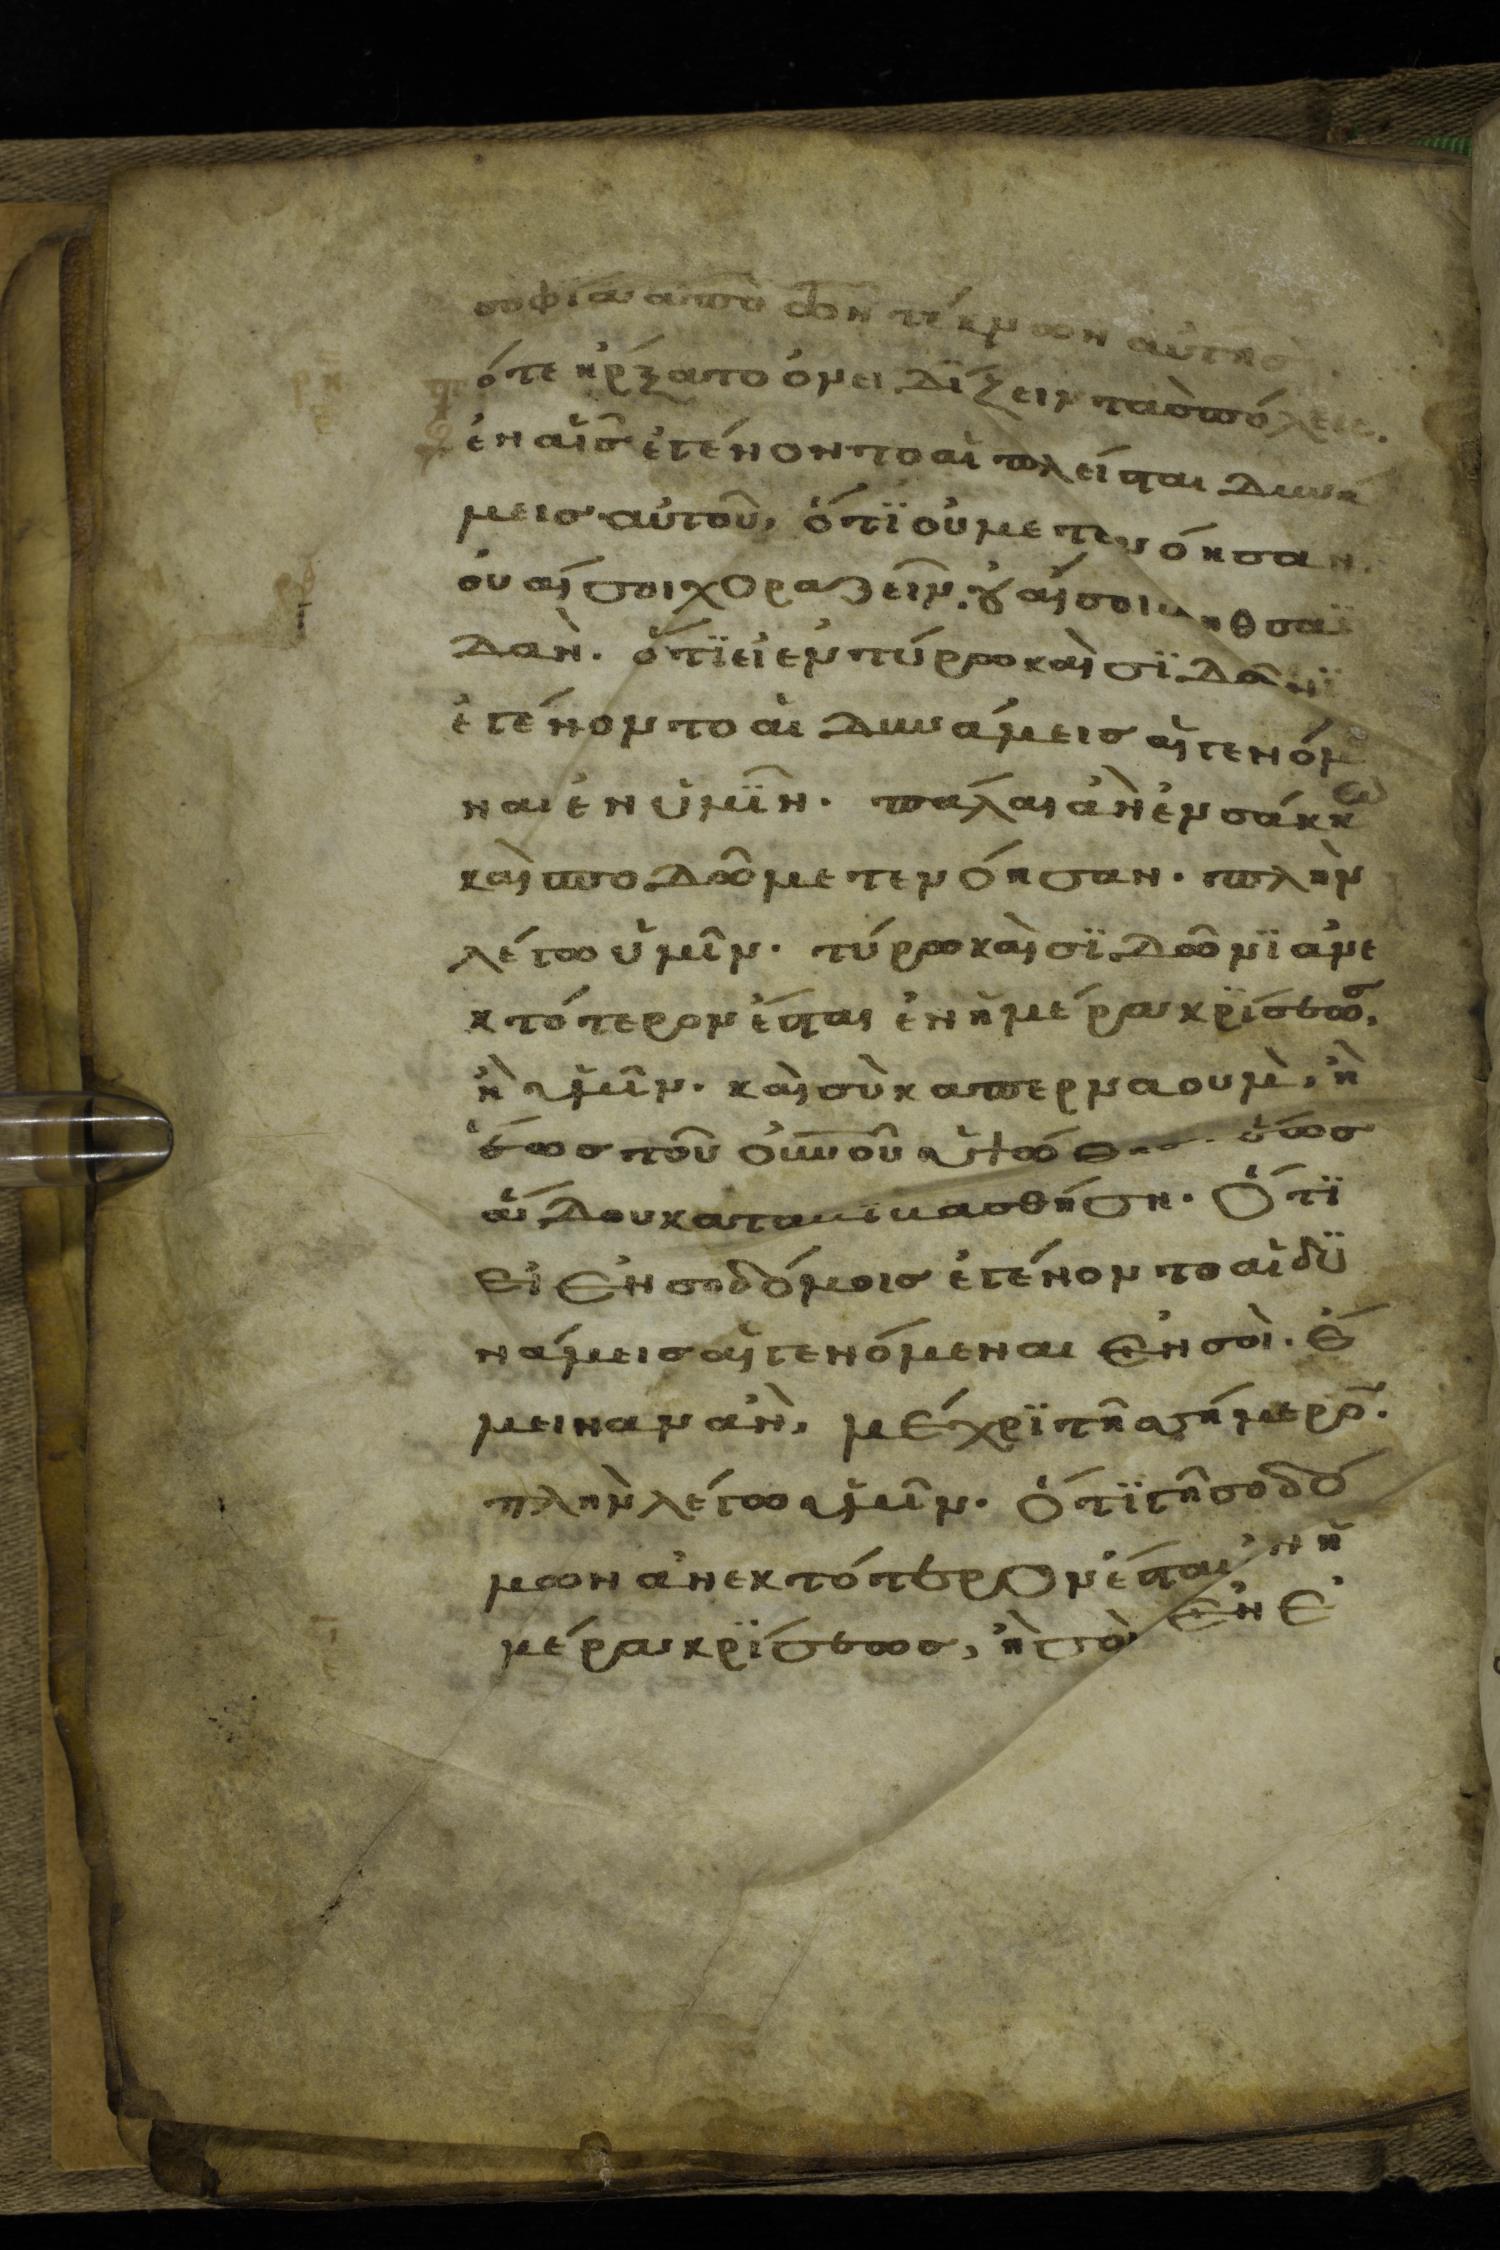 σοφία ἀπὸ τῶν τέκνων αὐτῆσ
τότε ἠρξατο ὀνειδϊζειν τὰσ πόλεισ.
ἐν αἷσ ἐγένοντο αἱ πλεῖσται δυνά
μεισ αὐτοῦ, ὅτϊ οὐ μετενόησαν.
οὐαί σοι χοραζεὶν. οὐαί σοι βηθσαϊ
δαν. ὅτϊ εἰ εν τύρω καὶ σϊδῶνϊ
ἐγένοντο αἱ δυνάμεισ αἱ γενόμε
ναι ἐν ὑμῖν. πάλαι ἀν ἐν σάκκω
καὶ σποδῶ μετενόησαν. πλὴν
λέγω ὑμῖν. τύρω καὶ σϊδῶνϊ ἀνε
κτότερον ἔσται ἐν ἡμέρα κρϊσεωσ,
ἢ ὑμῖν. καὶ σὺ καπερναουμ, ἡ
ἕωσ τοῦ οὐνοῦ ὑψωθεισ. ἕωσ
ἅδου καταβιβασθήση. Ὅτϊ
εἰ ἐν σοδόμοισ ἐγένοντο αἱ δϋ
νάμεισ αἱ γενόμεναι ἐν σοὶ. ἔ
μειναν ἂν, μέχρϊ τῆσ σήμερον.
πλὴν λέγω ὑμῖν. ὅτϊ γῆ σοδό
μων ἀνεκτότερον ἔσται ἐν ἡ
μέρα κρϊσεωσ, ἢ σοὶ ἐν ἐ